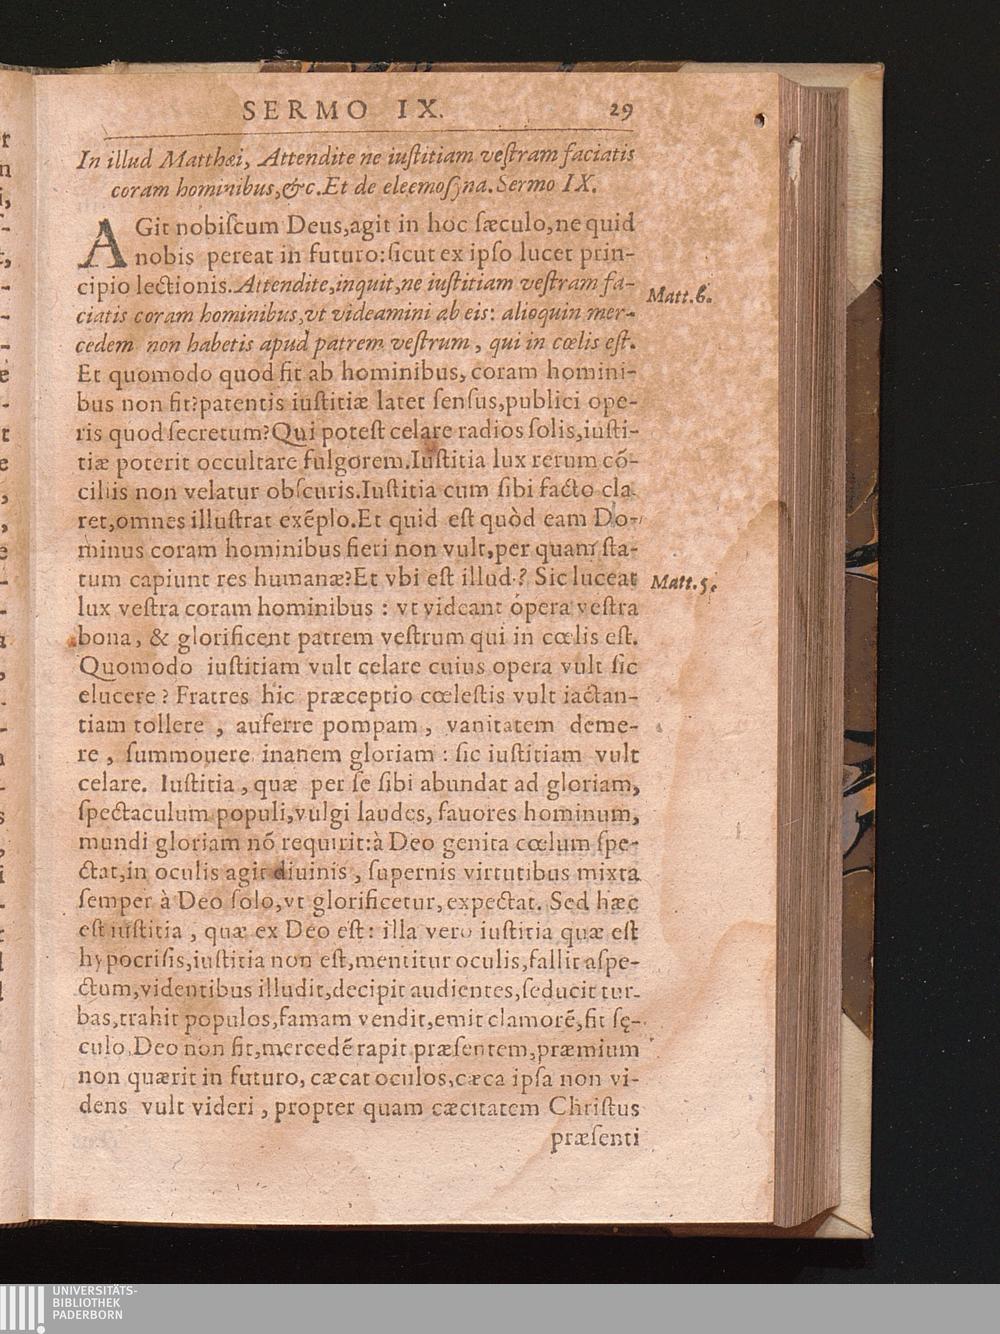 SERMO IX. 29
In illud Matthæi, Attendite ne iuſtitiam veſtram faciatis
coram hominibus,&c.Et de eleemoſyna.Sermo IX.
AGit nobiſcum Deus,agit in hoc ſæculo,ne quid
nobis pereat in futuro:ſicut ex ipſo lucet prin-
cipio lectionis.Attendite,inquit,ne iuſtitiam veſtram fa-
Matt.6.
ciatis coram hominibus,vt videamini ab eis: alioquin mer-
cedem non habetis apud patrem veſtrum, qui in cœlis eſt.
Et quomodo quod fit ab hominibus, coram homini-
bus non fit?patentis iuſtitiæ latet ſenſus,publici ope-
ris quod ſecretum?Qui poteſt celare radios ſolis,iuſti-
tiæ poterit occultare fulgorem.Iuſtitia lux rerum cõ-
ciliis non velatur obſcuris.Iuſtitia cum ſibi facto cla-
ret,omnes illuſtrat exẽplo.Et quid eſt quòd eam Do-
minus coram hominibus fieri non vult,per quam ſta-
tum capiunt res humanæ?Et vbi eſt illud? Sic luceat
Matt.5.
lux veſtra coram hominibus : vt videant opera veſtra
bona, & glorificent patrem veſtrum qui in cœlis eſt.
Quomodo iuſtitiam vult celare cuius opera vult ſic
elucere? Fratres hic præceptio cœleſtis vult iactan-
tiam tollere , auferre pompam, vanitatem deme-
re , ſummouere inanem gloriam : ſic iuſtitiam vult
celare. Iuſtitia, quæ per ſe ſibi abundat ad gloriam,
ſpectaculum populi,vulgi laudes, fauores hominum,
mundi gloriam nõ requirit:à Deo genita cœlum ſpe-
ctat,in oculis agit diuinis, ſupernis virtutibus mixta
ſemper à Deo ſolo,vt glorificetur, expectat. Sed hæc
eſt iuſtitia , quæ ex Deo eſt: illa vero iuſtitia quæ eſt
hypocriſis,iuſtitia non eſt,mentitur oculis,fallit aſpe-
ctum,videntibus illudit,decipit audientes,ſeducit tur-
bas,trahit populos,famam vendit,emit clamorẽ,fit ſę-
culo,Deo non fit,mercedẽ rapit præſentem,præmium
non quærit in futuro, cæcat oculos,cæca ipſa non vi-
dens vult videri, propter quam cæcitatem Chriſtus
præſenti
UNIVERSITÄTS-
BIBLIOTHEK
PADERBORN